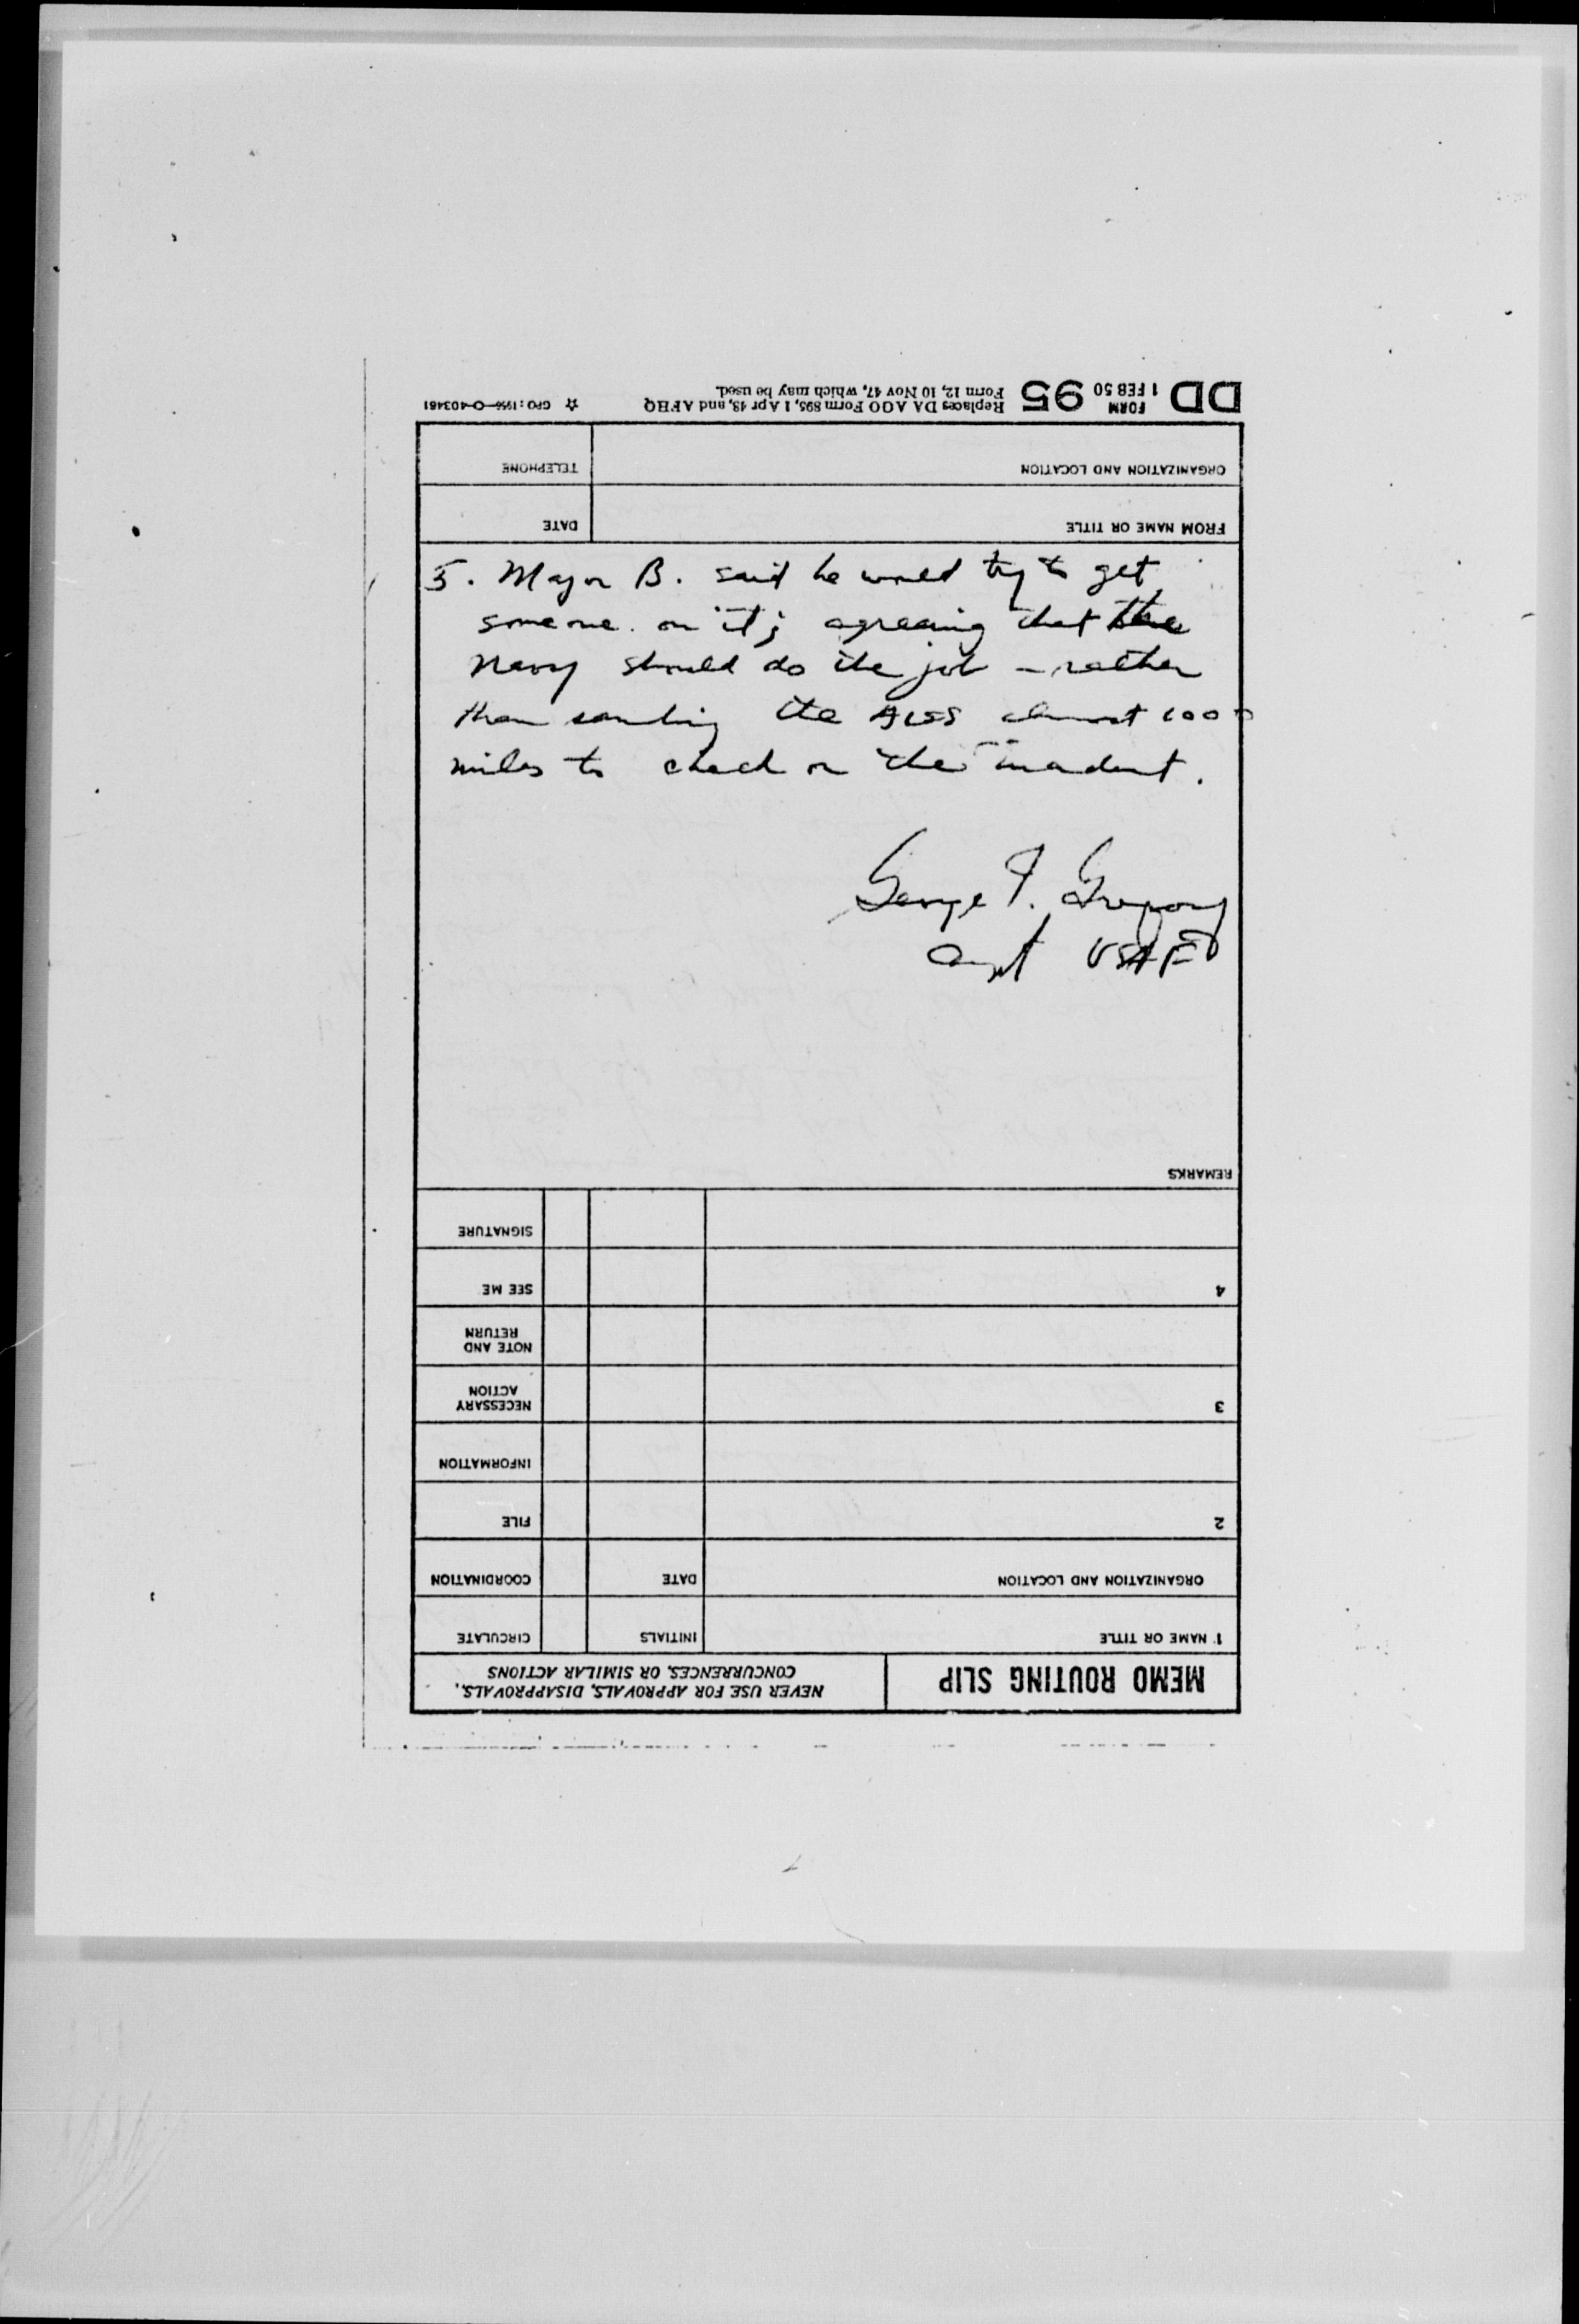 5. Major B. said he would try to get
someone on it; agreeing that the
Navy should do the job – rather
than sending the AISS almost 1000
miles to check on the incident.
George T. Gregory
Capt USAF
MEMO ROUTING SLIP
NEVER USE FOR APPROVALS, DISAPPROVALS,
CONCURRENCES, OR SIMILAR ACTIONS
1 NAME OR TITLE
INITIALS
CIRCULATE
ORGANIZATION AND LOCATION
DATE
COORDINATION
2
FILE
INFORMATION
3
NECESSARY
ACTION
NOTE AND
RETURN
4
SEE ME
SIGNATURE
REMARKS
FROM NAME OR TITLE
DATE
ORGANIZATION AND LOCATION
TELEPHONE
DD FORM 1 FEB 50 95
Replaces DA AGO Form 895, 1 Apr 48, and AFHQ
Form 12, 10 Nov 47, which may be used.
☆ GPO: 1956—O-403461